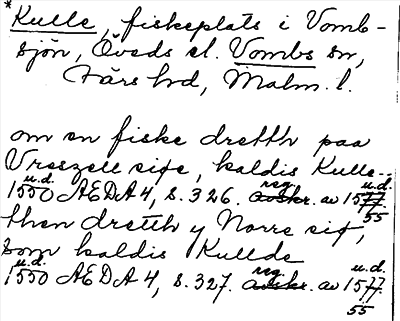 *Kulle, fiskeplats i Vomb-
sjön, Öveds el. Vombs sn,
Färs hd, Malm. l.
om en fiske dretth paa
Vreszell siøe, kaldis Kulle..
u.d. reg. u.d.
1550 AEDA 4, s. 326. avskr. av 1577.
55
then dretth y Norre siø,
som kaldis Kullde
u.d. reg. u.d.
1550 AEDA 4, s. 327. avskr. av 1577
55